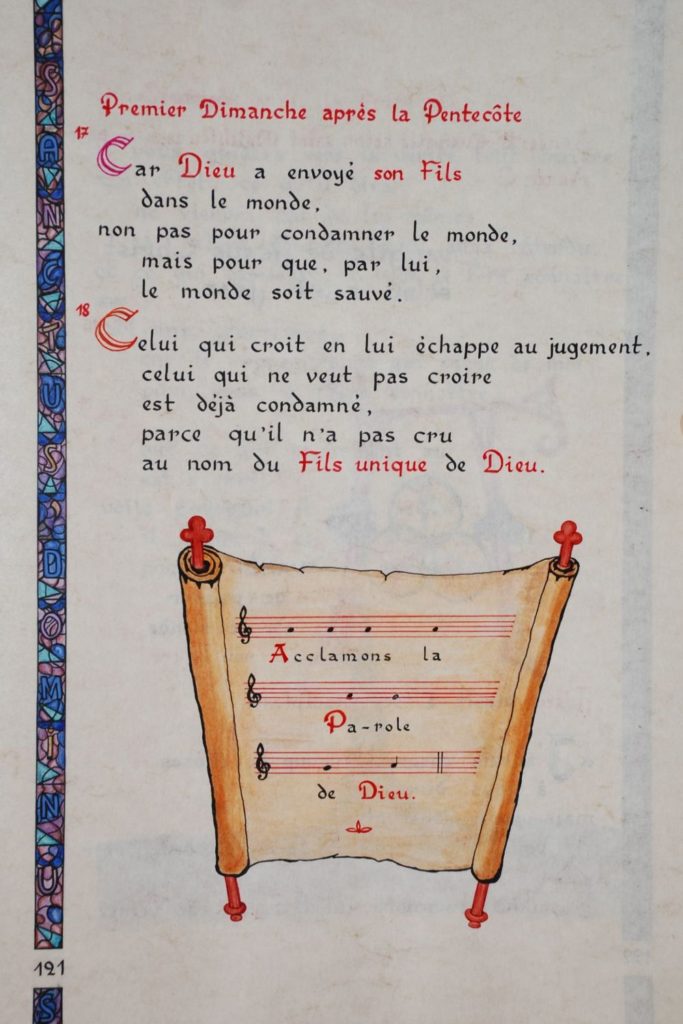 Premier Dimanche après la Pentecôte
17
Car Dieu a envoyé son Fils
dans le monde,
non pas pour condamner le monde,
mais pour que, par lui,
le monde soit sauvé.
18
Celui qui croit en lui échappe au jugement,
celui qui ne veut pas croire
est déjà condamné,
parce qu'il n'a pas cru
au nom du Fils unique de Dieu.
Acclamons la
Pa-role
de Dieu.
SANCTUS DOMINUS
121
S